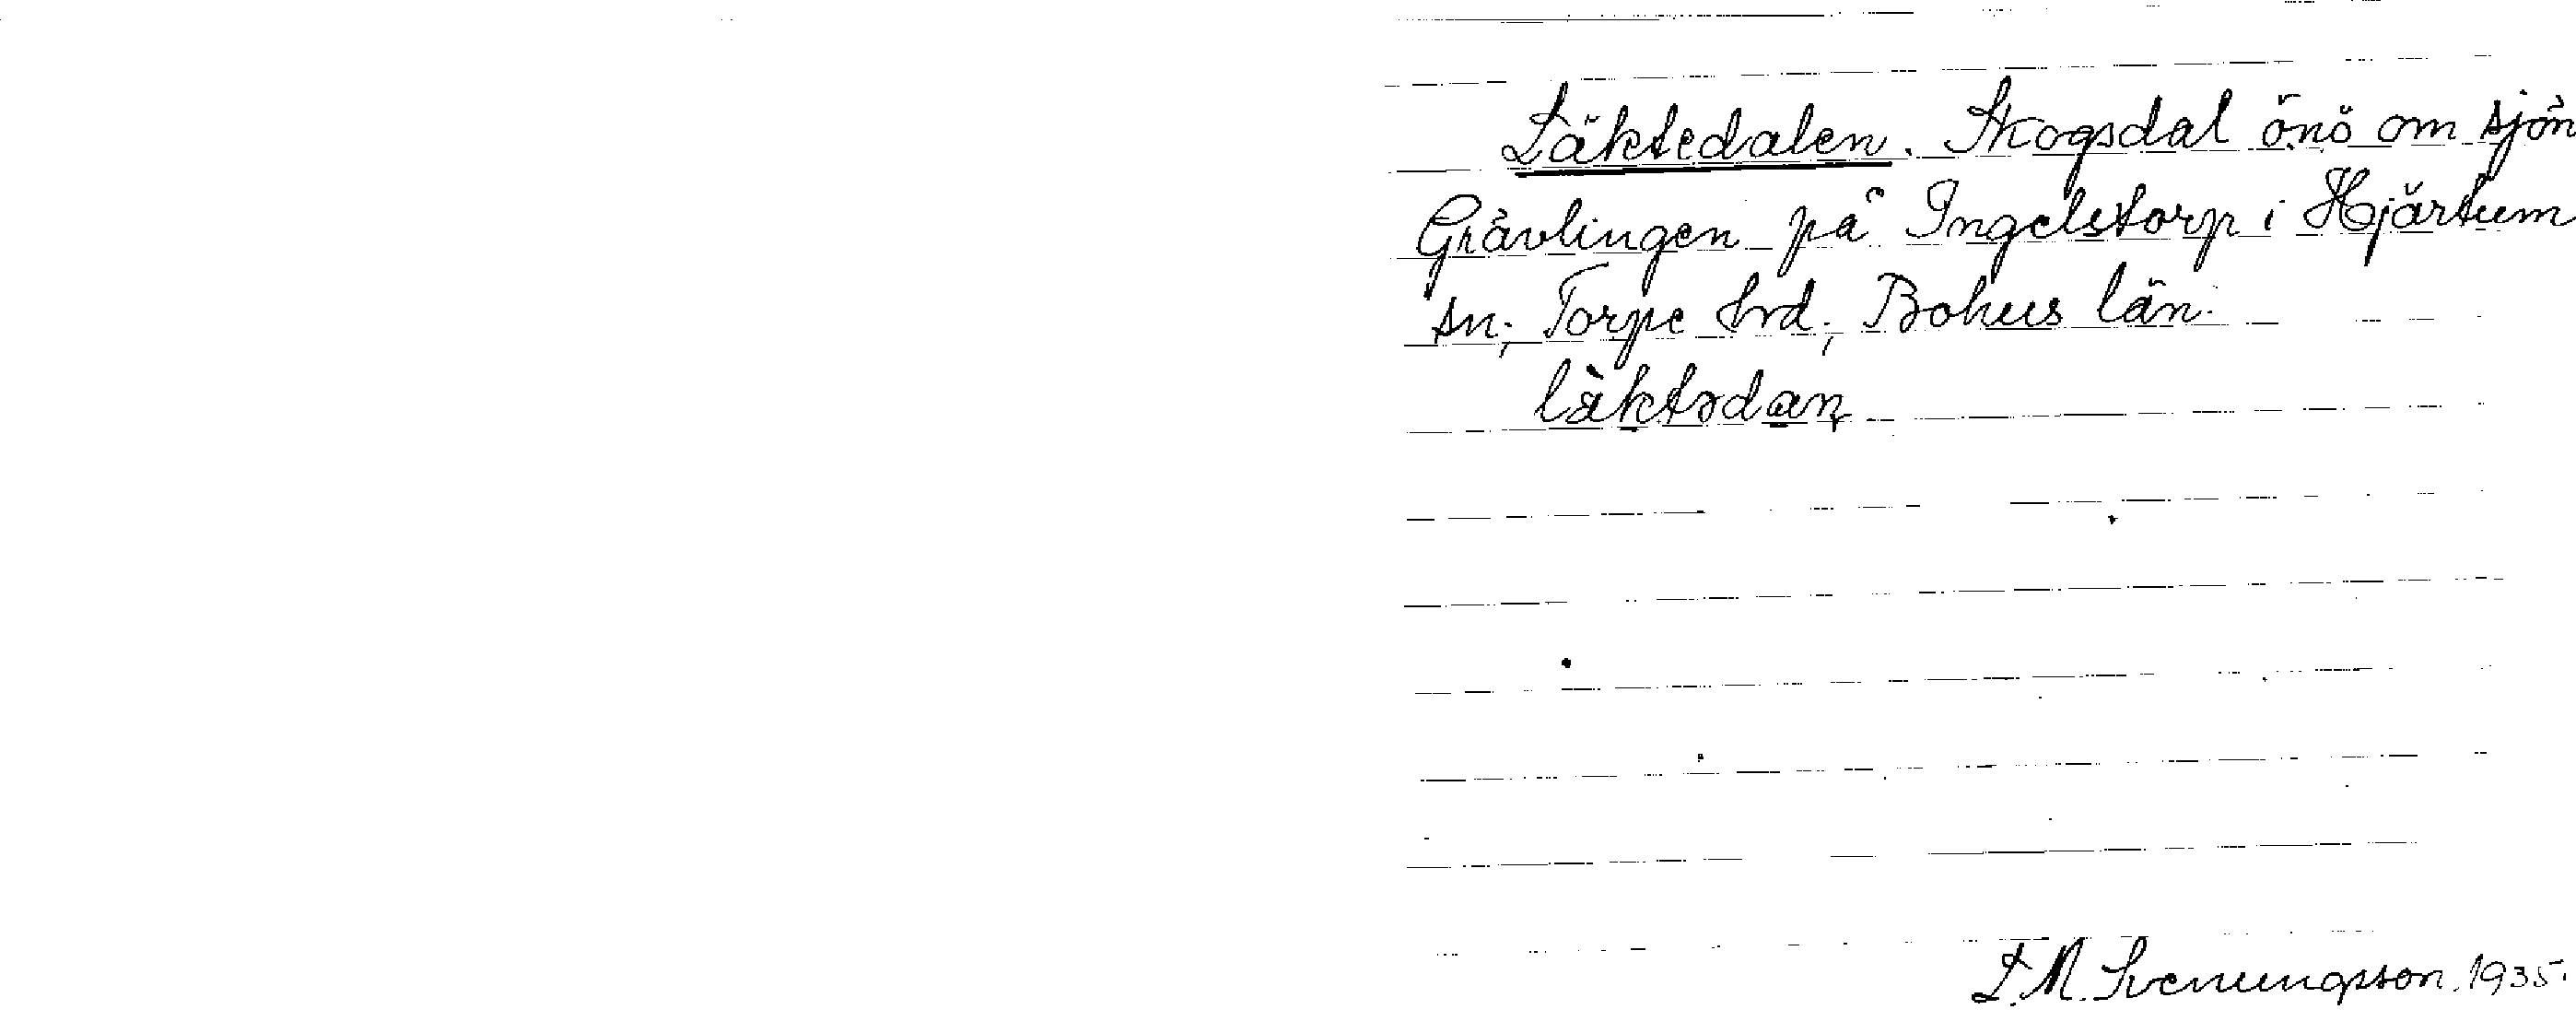 Läktedalen. Skogsdal önö om sjön
Grävlingen på Ingelstorp i Hjärtum
sn; Torpe hrd; Bohus län.
lὰktədaṉ
L. M. Svenungsson. 1935.